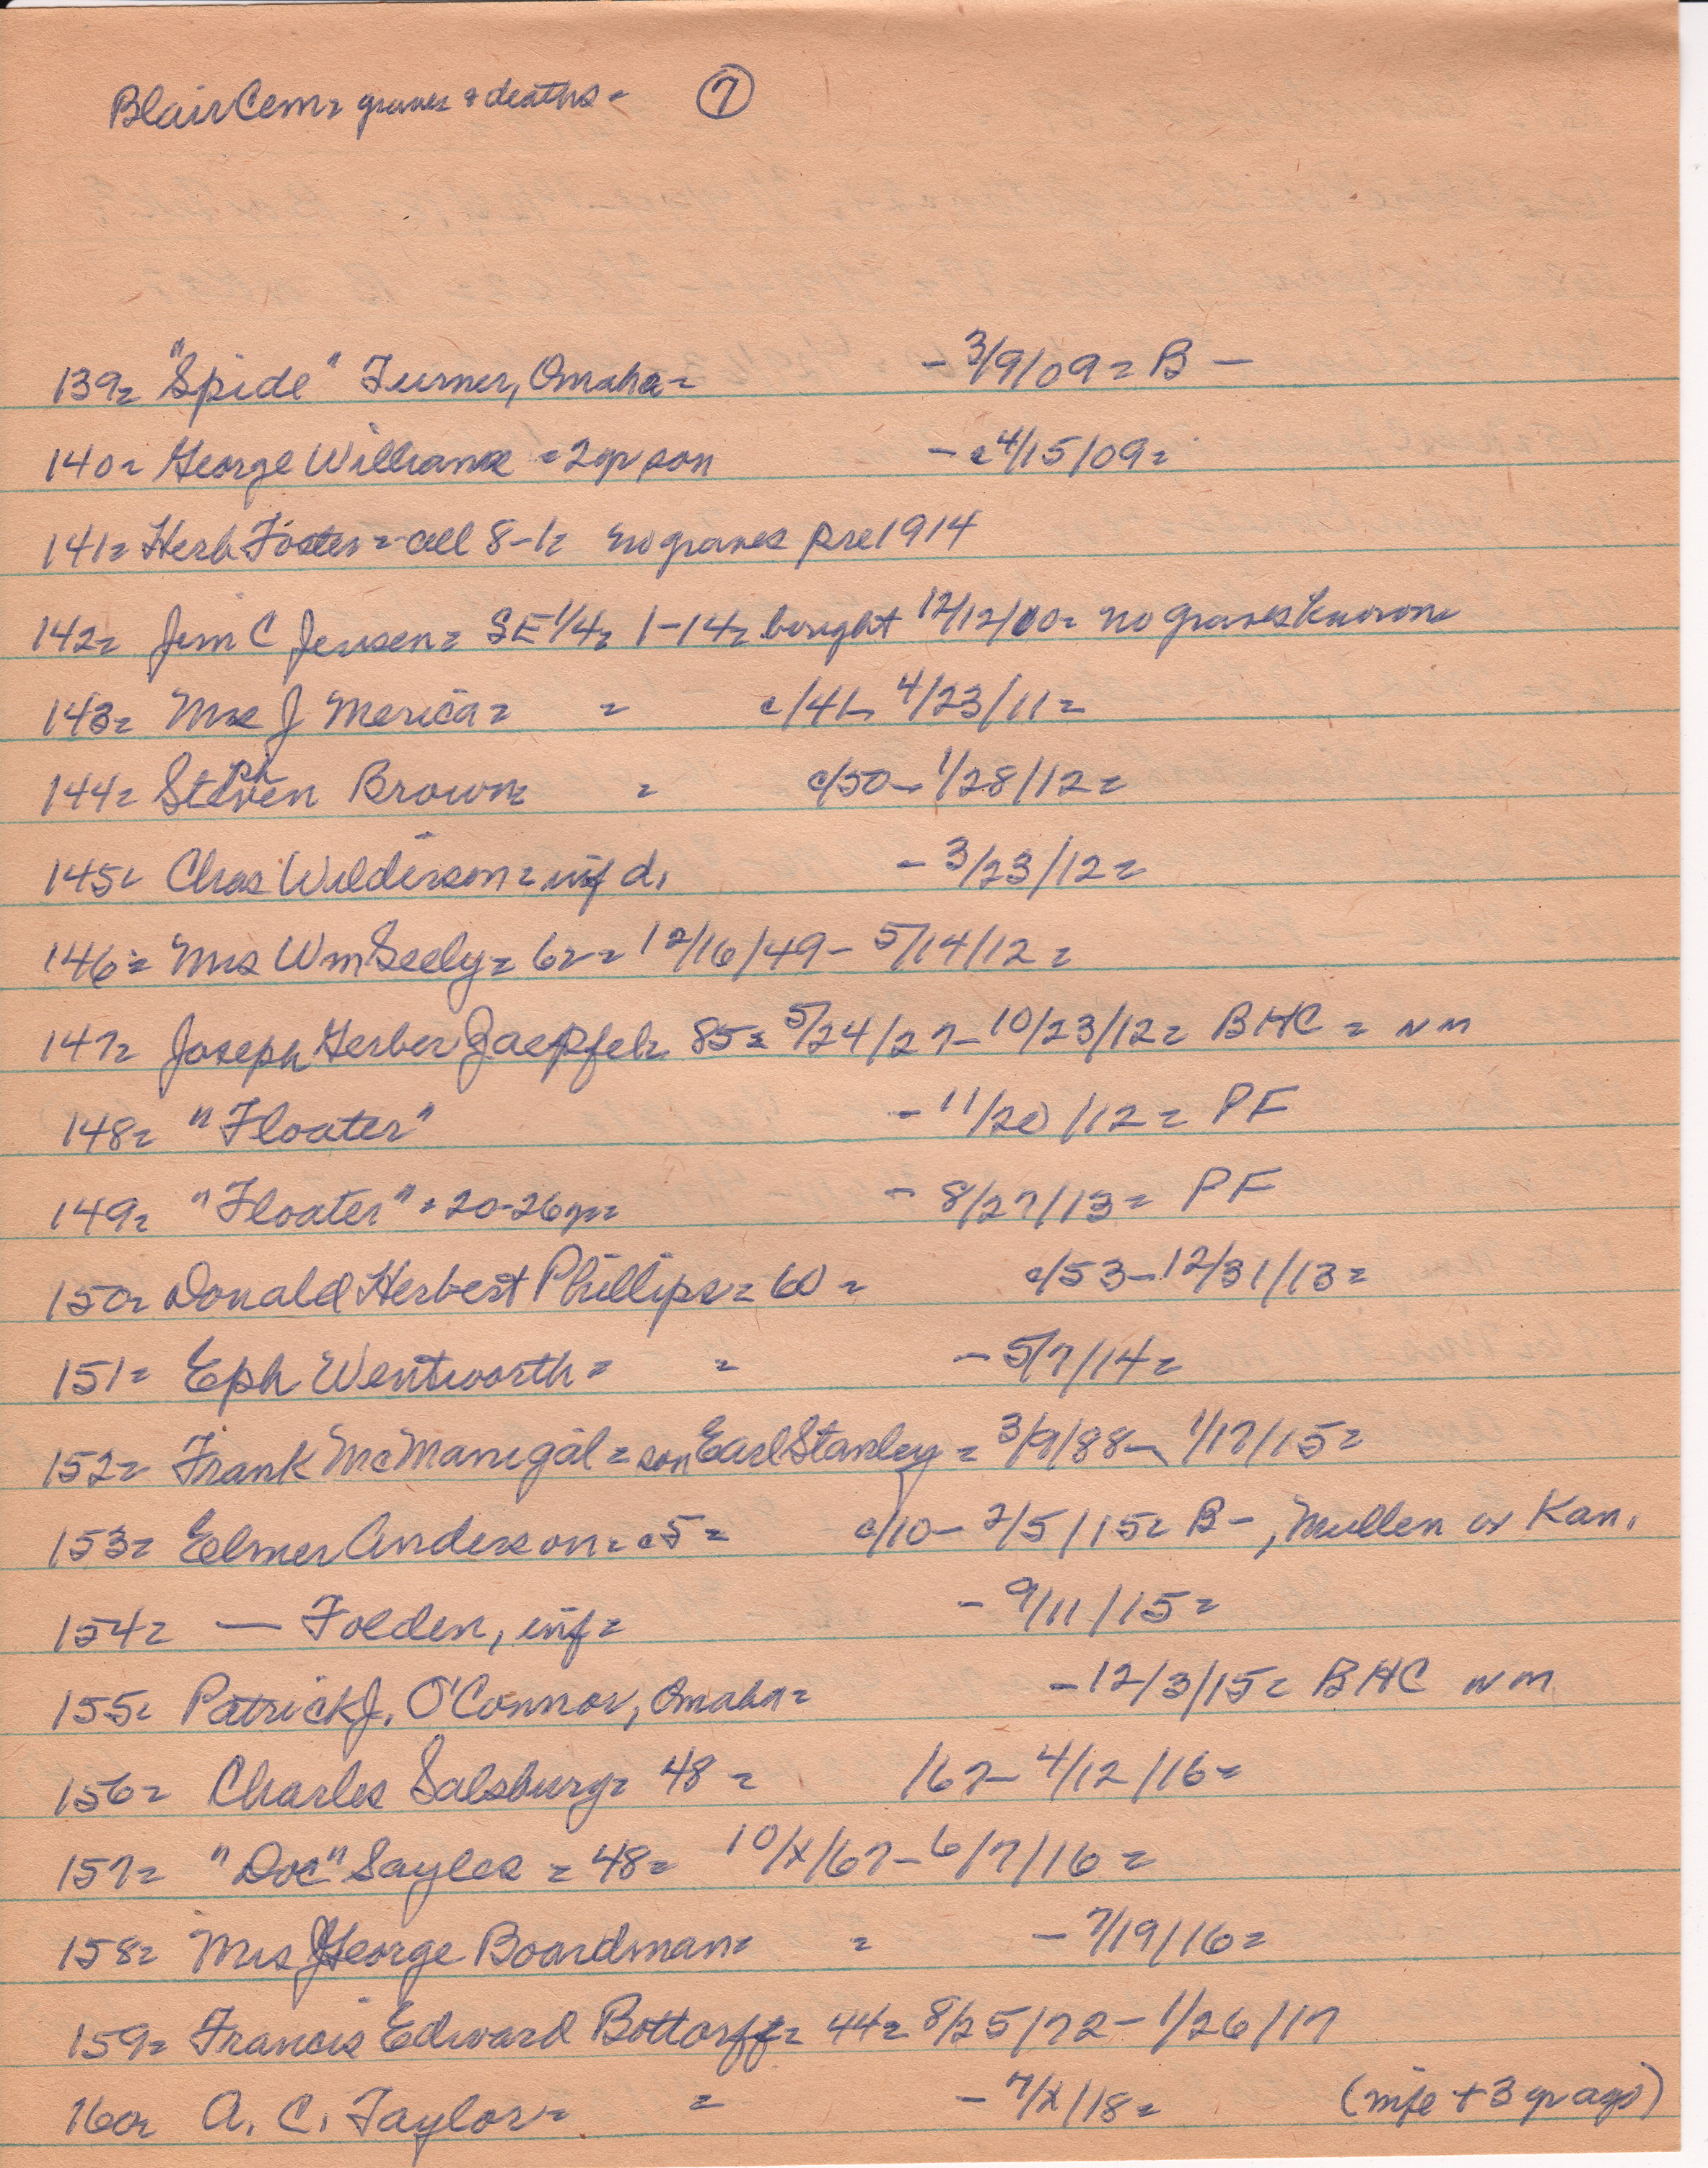 Blair Cem= graves & deaths= 7
139= "Spide" Turner, Omaha= - 3/9/09= B -
140= George Williams =2yr son - c4/15/09=
141= Herb Foster= cell 8-1= no graves pre 1914
142= Jim C Jensen= SE 1/4= 1-14= bought 12/12/00= no graves known
143= Mrs J Merica= = c/41- 4/23/11=
144= Stephen Brown= = c/50- 1/28/12=
145= Chas Wilderson= inf d. - 3/23/12=
146= Mrs Wm Seely= 62= 12/16/49- 5/14/12=
147= Joseph Gerber Zaepfel= 85= 5/24/27- 10/23/12= BHC = nm
148= "Floater" - 11/20/12= PF
149= "Floater" = 20-26yr= - 8/27/13= PF
150= Donald Herbert Phillips= 60= c/53- 12/31/13=
151= Eph Wentworth= = - 5/7/14=
152= Frank McManigal= son Earl Stanley= 3/9/88- 1/17/15=
153= Elmer Anderson= c5= c/10- 2/5/15= B-, Mullen or Kan.
154= — Folden, inf= - 9/11/15=
155= Patrick J. O'Connor, Omaha= - 12/3/15= BHC nm
156= Charles Salsburg= 48= /67- 4/12/16=
157= "Doc" Sayles = 48= 10/x/67- 6/7/16=
158= Mrs George Boardman= = - 7/19/16=
159= Francis Edward Bottorff= 44= 8/25/72- 1/26/17
160= A. C. Taylor= = - 7/x/18= (wife + 3 yr ago)